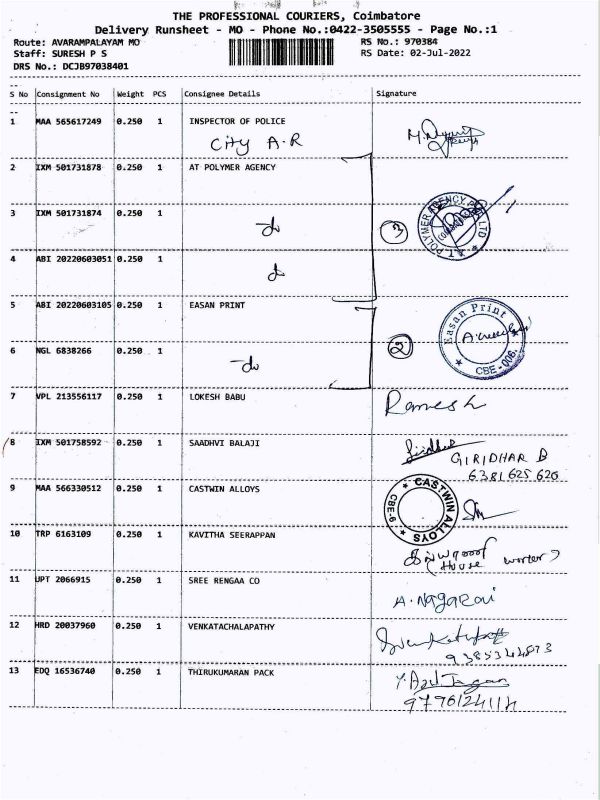 THE PROFESSIONAL COURIERS, Coimbatore
Delivery Runsheet - MO - Phone No.:0422-3505555 - Page No.:1
Route: AVARAMPALAYAM MO RS No.: 970384
Staff: SURESH P S RS Date: 02-Jul-2022
DRS No.: DCJB97038401
S No Consignment No Weight PCS Consignee Details Signature
1 MAA 565617249 0.250 1 INSPECTOR OF POLICE
City A.R
2 IXM 501731878 0.250 1 AT POLYMER AGENCY
3 IXM 501731874 0.250 1 do 3
4 ABI 20220603051 0.250 1 do
5 ABI 20220603105 0.250 1 EASAN PRINT
Easan Print
CBE-006.
6 NGL 6838266 0.250 1 -do 2
7 VPL 213556117 0.250 1 LOKESH BABU Ramesh
8 IXM 501758592 0.250 1 SAADHVI BALAJI
GIRIDHAR B
6381625620
9 MAA 566330512 0.250 1 CASTWIN ALLOYS
CASTWIN ALLOYS
CBE-6
10 TRP 6163109 0.250 1 KAVITHA SEERAPPAN
House worker
11 UPT 2066915 0.250 1 SREE RENGAA CO
A. Nagarai
12 HRD 20037960 0.250 1 VENKATACHALAPATHY
13 EDQ 16536740 0.250 1 THIRUKUMARAN PACK